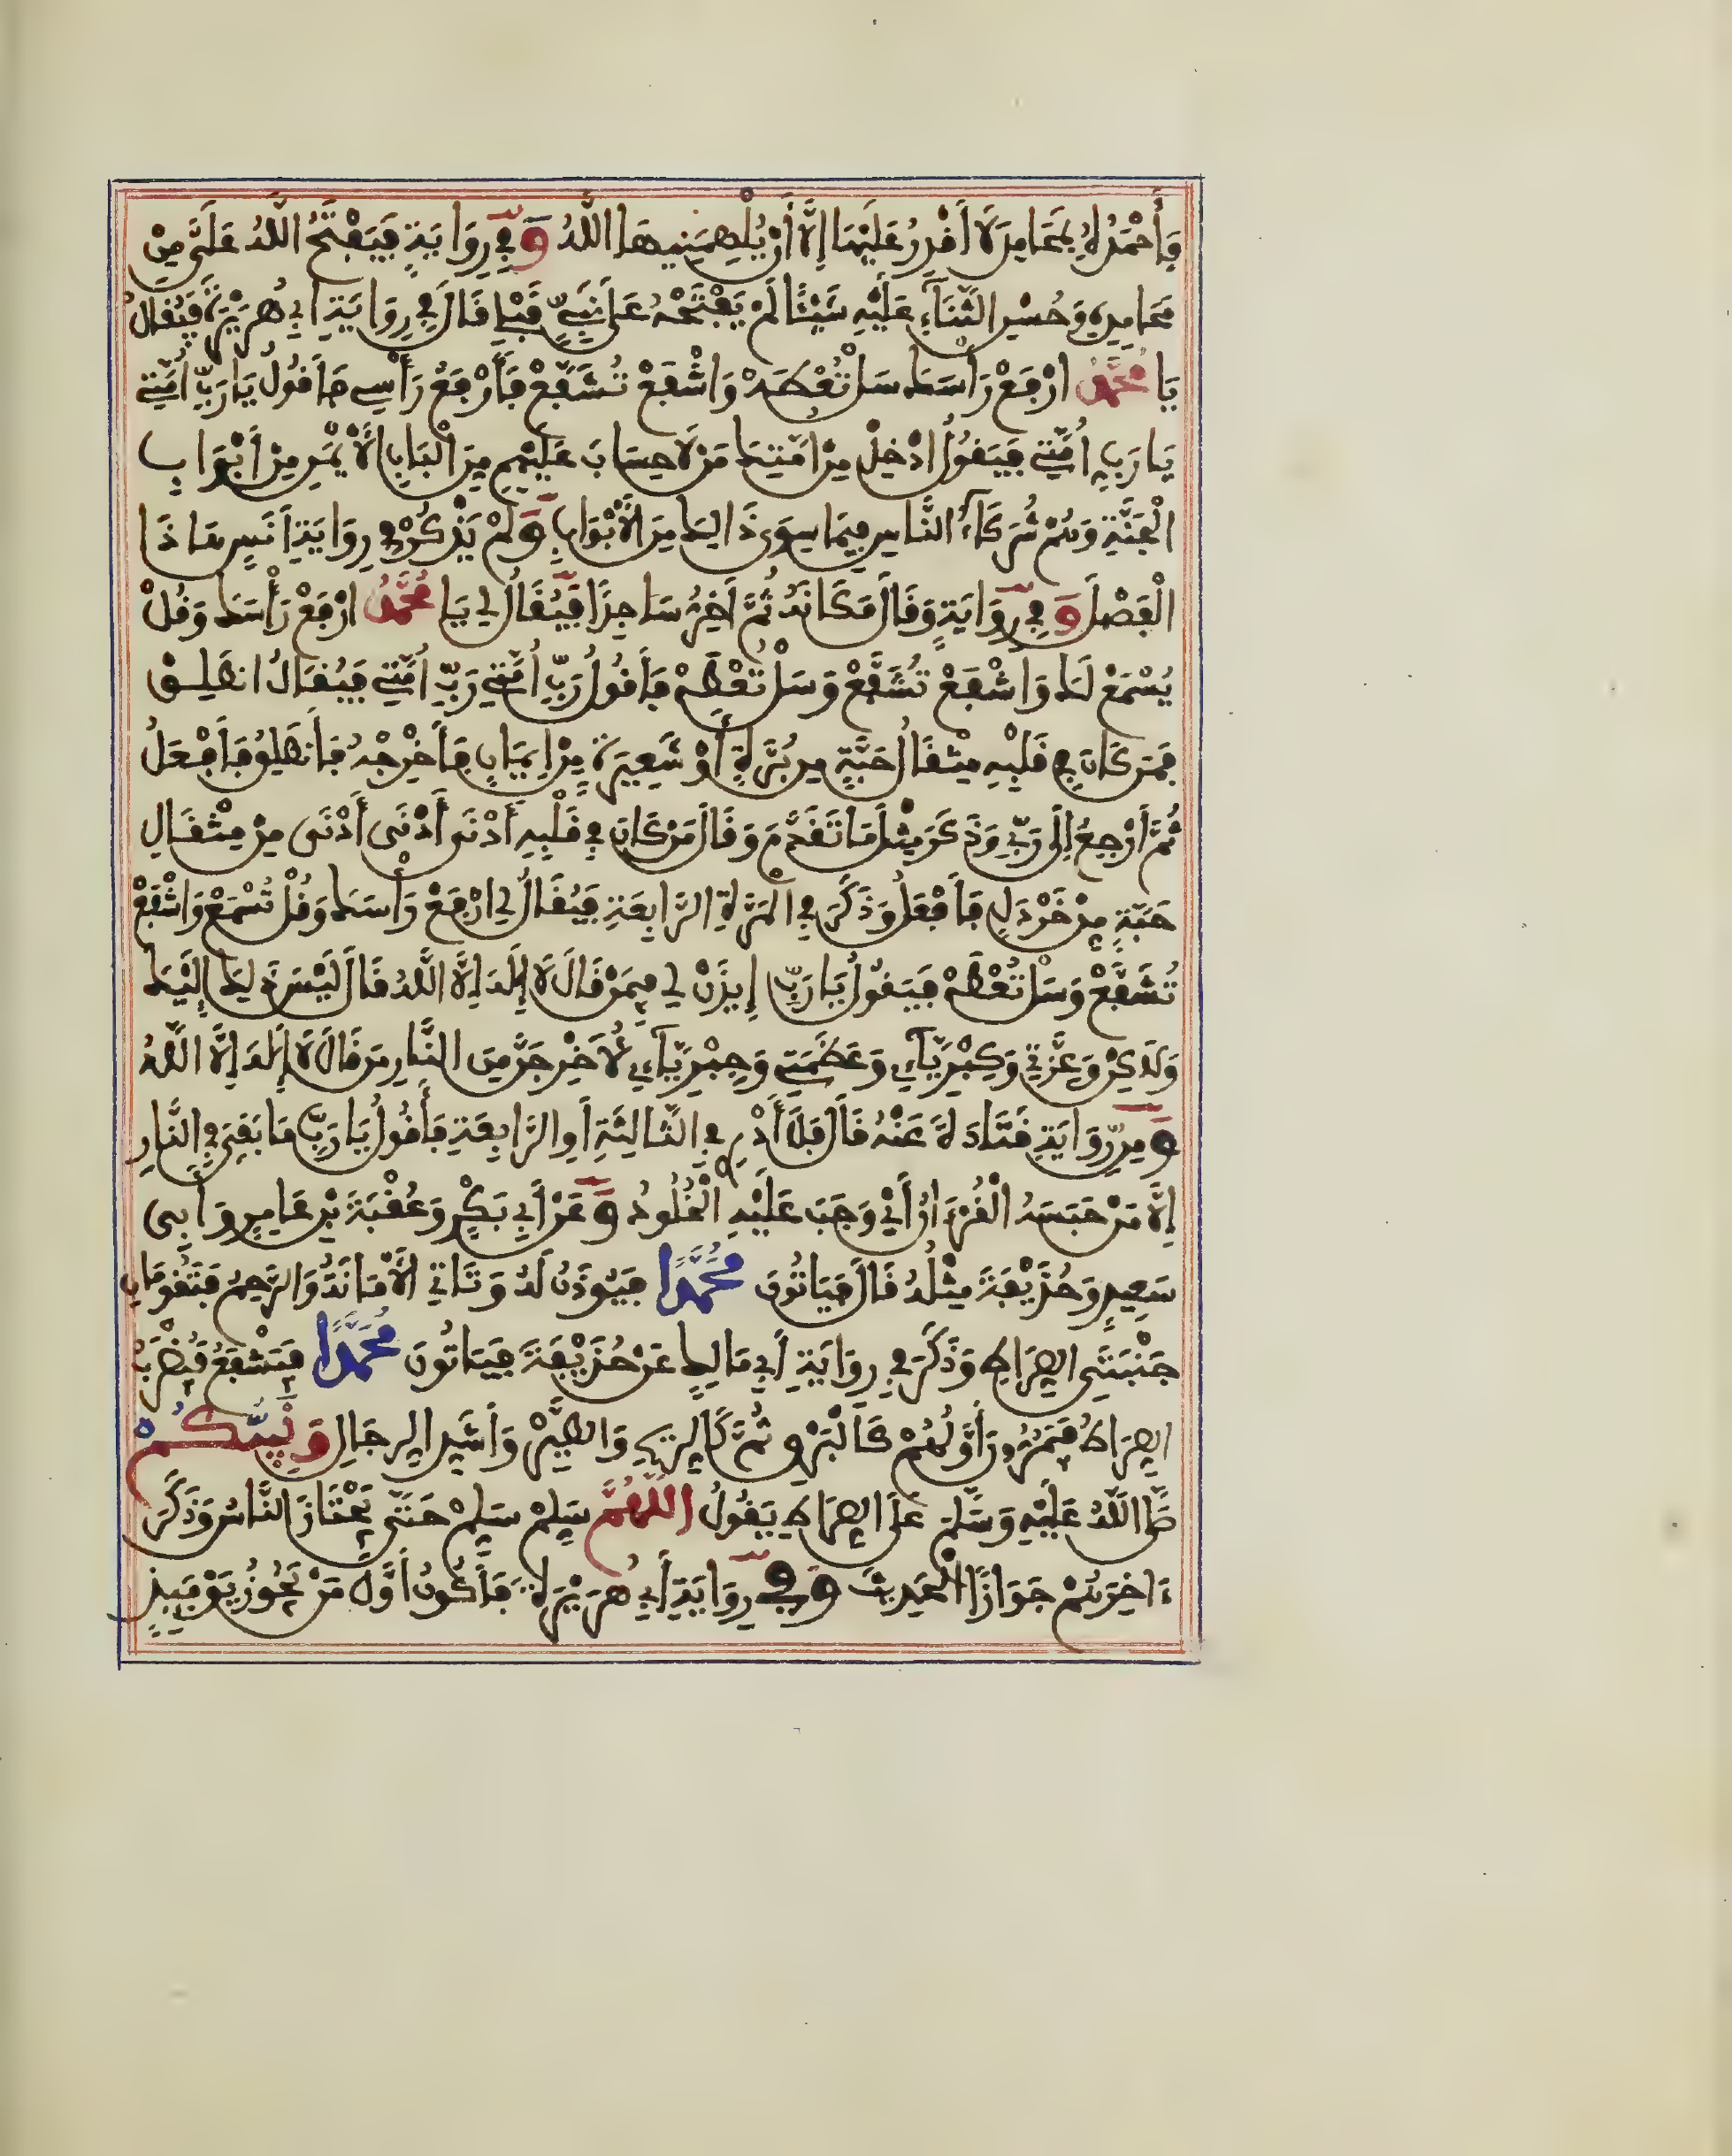 وَأَحْمَدُهُ بِمَحَامِدَ لَا أَقْدِرُ عَلَيْهَا إِلَّا أَنْ يُلْهِمَنِيهَا اللَّهُ وَفِي رِوَايَةٍ فَيَفْتَحُ اللَّهُ عَلَيَّ مِنْ
مَحَامِدِهِ وَحُسْنِ الثَّنَاءِ عَلَيْهِ شَيْئًا لَمْ يَفْتَحْهُ عَلَى نَبِيٍّ قَبْلِي قَالَ فِي رِوَايَةِ أَبِي هُرَيْرَةَ فَيُقَالُ
يَا مُحَمَّدُ ارْفَعْ رَأْسَكَ سَلْ تُعْطَهْ وَاشْفَعْ تُشَفَّعْ فَأَرْفَعُ رَأْسِي فَأَقُولُ يَا رَبِّ أُمَّتِي
يَا رَبِّ أُمَّتِي فَيَقُولُ ادْخِلْ مِنْ أُمَّتِكَ مَنْ لَا حِسَابَ عَلَيْهِمْ مِنَ الْبَابِ الْأَيْمَنِ مِنْ أَبْوَابِ
الْجَنَّةِ وَهُمْ شُرَكَاءُ النَّاسِ فِيمَا سِوَى ذَالِكَ مِنَ الْأَبْوَابِ وَلَمْ يَذْكُرْ فِي رِوَايَةِ أَنَسٍ هَاذَا
الْفَصْلَ وَفِي رِوَايَةٍ وَقَالَ مَكَانَهُ ثُمَّ أَخِرُّ سَاجِدًا فَيُقَالُ لِي يَا مُحَمَّدُ ارْفَعْ رَأْسَكَ وَقُلْ
يُسْمَعْ لَكَ وَاشْفَعْ تُشَفَّعْ وَسَلْ تُعْطَهْ فَأَقُولُ رَبِّ أُمَّتِي رَبِّ أُمَّتِي فَيُقَالُ انْطَلِقْ
فَمَنْ كَانَ فِي قَلْبِهِ مِثْقَالُ حَبَّةٍ مِنْ بُرَّةٍ أَوْ شَعِيرَةٍ مِنْ إِيمَانٍ فَأَخْرِجْهُ فَأَنْطَلِقُ فَأَفْعَلُ
ثُمَّ أَرْجِعُ إِلَى رَبِّي وَذَكَرَ مِثْلَ مَا تَقَدَّمَ وَقَالَ مَنْ كَانَ فِي قَلْبِهِ أَدْنَى أَدْنَى أَدْنَى مِنْ مِثْقَالِ
حَبَّةٍ مِنْ خَرْدَلٍ فَأَفْعَلُ وَذَكَرَ فِي الْمَرَّةِ الرَّابِعَةِ فَيُقَالُ لِي ارْفَعْ رَأْسَكَ وَقُلْ تُسْمَعْ وَاشْفَعْ
تُشَفَّعْ وَسَلْ تُعْطَهْ فَيَقُولُ يَا رَبِّ إِيذَنْ لِي فِيمَنْ قَالَ لَا إِلَهَ إِلَّا اللَّهُ قَالَ لَيْسَ ذَلِكَ إِلَيْكَ
وَلَكِنْ وَعِزَّتِي وَكِبْرِيَاءِي وَعَظَمَتِي وَجِبْرِيَاءِي لَأُخْرِجَنَّ مِنَ النَّارِ مَنْ قَالَ لَا إِلَهَ إِلَّا اللَّهُ
وَمِنْ رِوَايَةِ قَتَادَةَ عَنْهُ قَالَ فَلَا أَدْرِي فِي الثَّالِثَةِ أَوِ الرَّابِعَةِ فَأَقُولُ يَا رَبِّ مَا بَقِيَ فِي النَّارِ
إِلَّا مَنْ حَبَسَهُ الْقُرْءَانُ أَيْ وَجَبَ عَلَيْهِ الْخُلُودُ وَعَنْ أَبِي بَكْرٍ وَعُقْبَةَ بْنِ عَامِرٍ وَأَبِي
سَعِيدٍ وَحُذَيْفَةَ مِثْلُهُ قَالَ فَيَاتُونَ مُحَمَّدًا فَيُوذَنُ لَهُ وَتَاتِي الْأَمَانَةُ وَالرَّحِمُ فَتَقُومَانِ
جَنْبَتَيِ الصِّرَاطِ وَذَكَرَ فِي رِوَايَةِ أَبِي مَالِكٍ عَنْ حُذَيْفَةَ فَيَاتُونَ مُحَمَّدًا فَيَشْفَعُ فَيُضْرَبُ
الصِّرَاطُ فَيَمُرُّونَ أَوَّلُهُمْ كَالْبَرْقِ ثُمَّ كَالرِّيحِ وَالطَّيْرِ وَأَشَدِّ الرِّجَالِ وَنَبِيُّكُمْ
صَلَّى اللَّهُ عَلَيْهِ وَسَلَّمَ عَلَى الصِّرَاطِ يَقُولُ اللَّهُمَّ سَلِّمْ سَلِّمْ حَتَّى يَجْتَازَ النَّاسُ وَذَكَرَ
ءَاخِرَهُمْ جَوَازًا الْحَدِيثَ وَفِي رِوَايَةِ أَبِي هُرَيْرَةَ فَأَكُونُ أَوَّلَ مَنْ يَجُوزُ يَوْمَئِذٍ